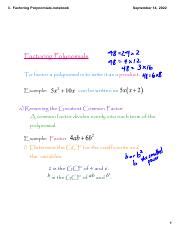 3. Factoring Polynomials.notebook
September 14, 2022
Factoring Polynomials
48 = 24 × 2
48 = 4 × 12
48 = 3 × 16
48 = 6 × 8
To factor a polynomial is to write it as a product.
Example: 5x² + 10x can be written as 5x(x + 2)
a) Removing the Greatest Common Factor
A common factor divides evenly into each term of the polynomial.
Example: Factor 4ab + 6b²
Determine the GCF of the coefficients and the variables.
is the GCF of 4 and 6.
is the GCF of ab and b²